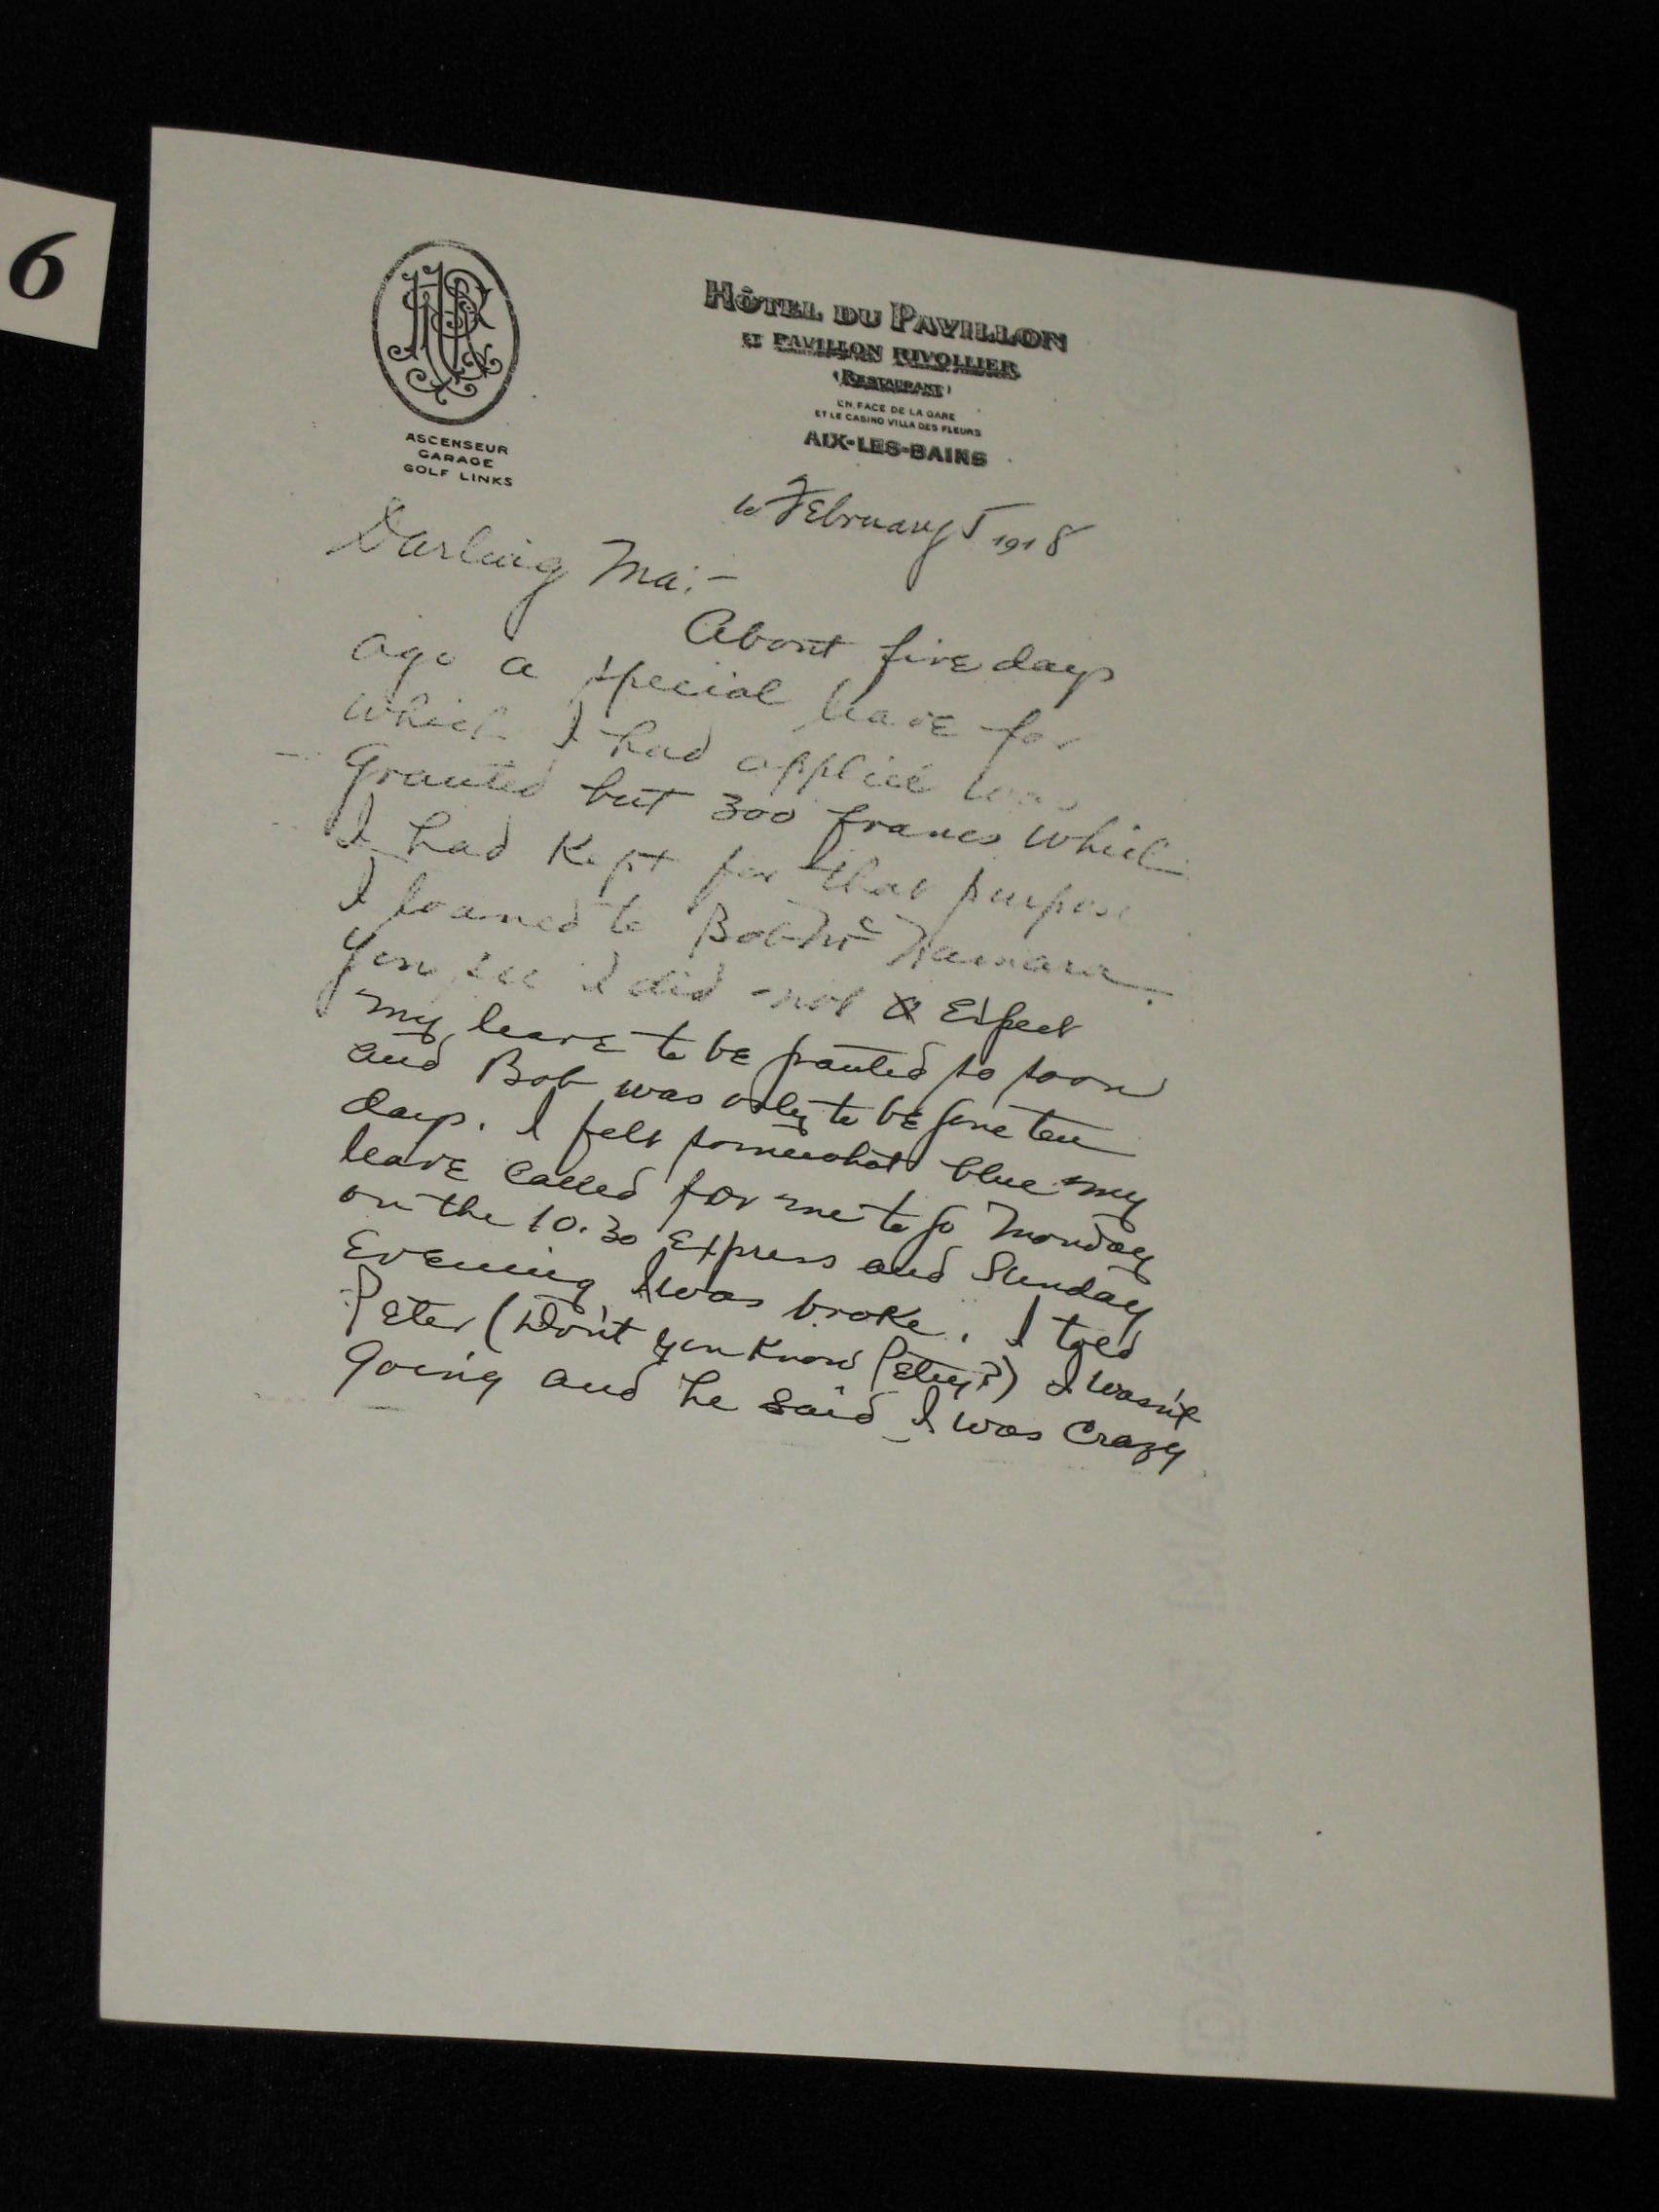 6
HÔTEL DU PAVILLON
ET PAVILLON RIVOLLIER
(RESTAURANT)
EN FACE DE LA GARE
ET LE CASINO VILLA DES FLEURS
AIX-LES-BAINS
ASCENSEUR
GARAGE
GOLF LINKS
le February 5 1918
Darling Ma:-
About five days
ago a special leave for
which I had applied was
Granted but 300 francs which
I had Kept for that purpose
I loaned to Bob McNamara.
You see I did not Expect
my leave to be granted so soon
and Bob was only to be gone ten
days. I felt somewhat blue my
leave called for me to go Monday
on the 10.30 Express and Sunday
Evening I was broke. I told
Peter (Don't you know Petey?) I wasn't
going and he said I was crazy
DALTON